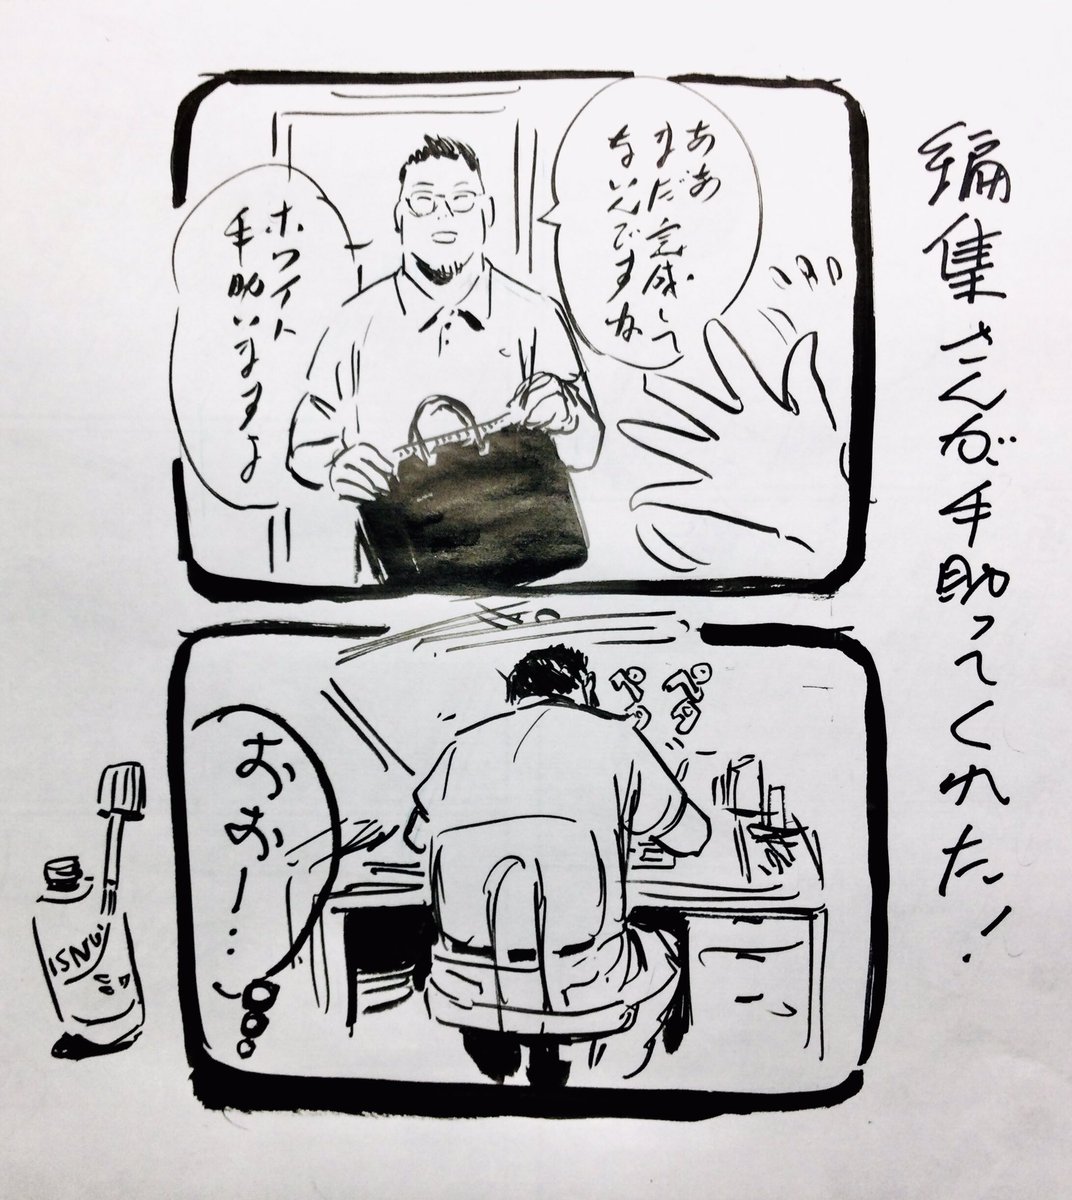 編集さんが手助ってくれた!
ああ
まだ完成して
ないんですね
ホワイト
手助いますよ
おお
おー…
ペタペタ
ISNU